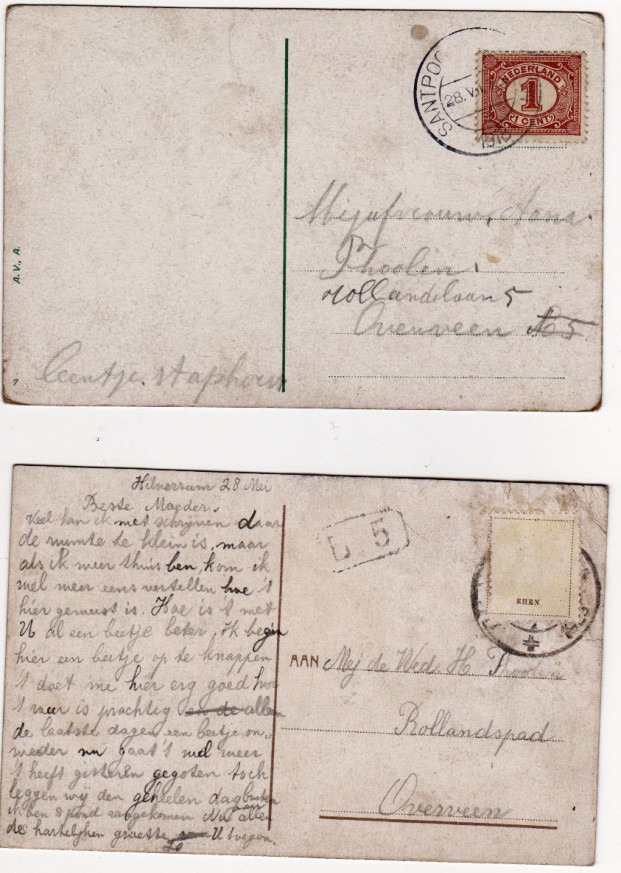 SANTPOO
28.V.
1910
NEDERLAND
1
1 CENT
Mejufvrouw, Anna
Hollandslaan 5
Overveen A5
A. V., A.
7
Leentje. staphorst
Hilversum 28 Mei
Beste Moeder.
Veel kan ik niet schrijven daar
de ruimte te klein is, maar
als ik weer thuis ben, kom ik
wel weer eens vertellen hoe 't
hier geweest is. Hoe is 't met
U al een beetje beter, ik begin
hier een beetje op te knappen
't doet me hier erg goed hoor
't weer is prachtig en de allen
de laatste dagen een beetje on„
weder nu gaat 't wel weer
't heeft gisteren gegoten toch
leggen wij den geheelen dag buiten
ik ben 8 pond aangekomen Nu aan allen
de hartelijken groeten U
b. 5
RHEN
AAN Mej de Wed. H.
Rollandspad
Overveen